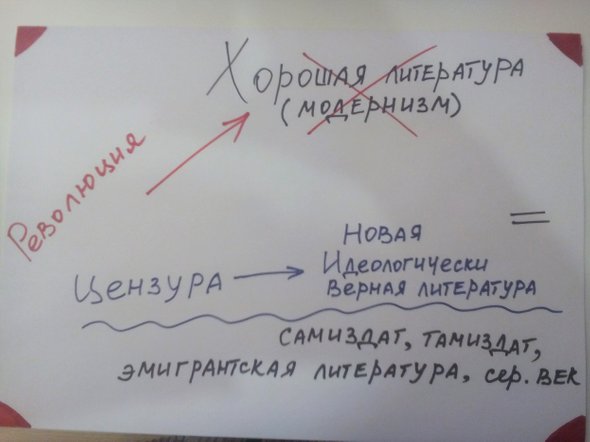 Хорошая литература
(модернизм)
Революция
=
Цензура → Новая
Идеологически
верная литература
самиздат, тамиздат,
эмигрантская литература, сер. век